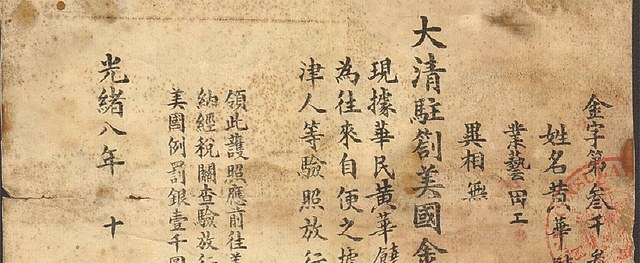 金字第叁千叁
姓名黄華
業藝田工
異相無
大清駐劄美國金
現據華民黄華饒
為往來自便之據
津人等驗照放行
領此護照應前往美
納經稅關查驗放行
美國例罰銀壹千圓
光緒八年 十